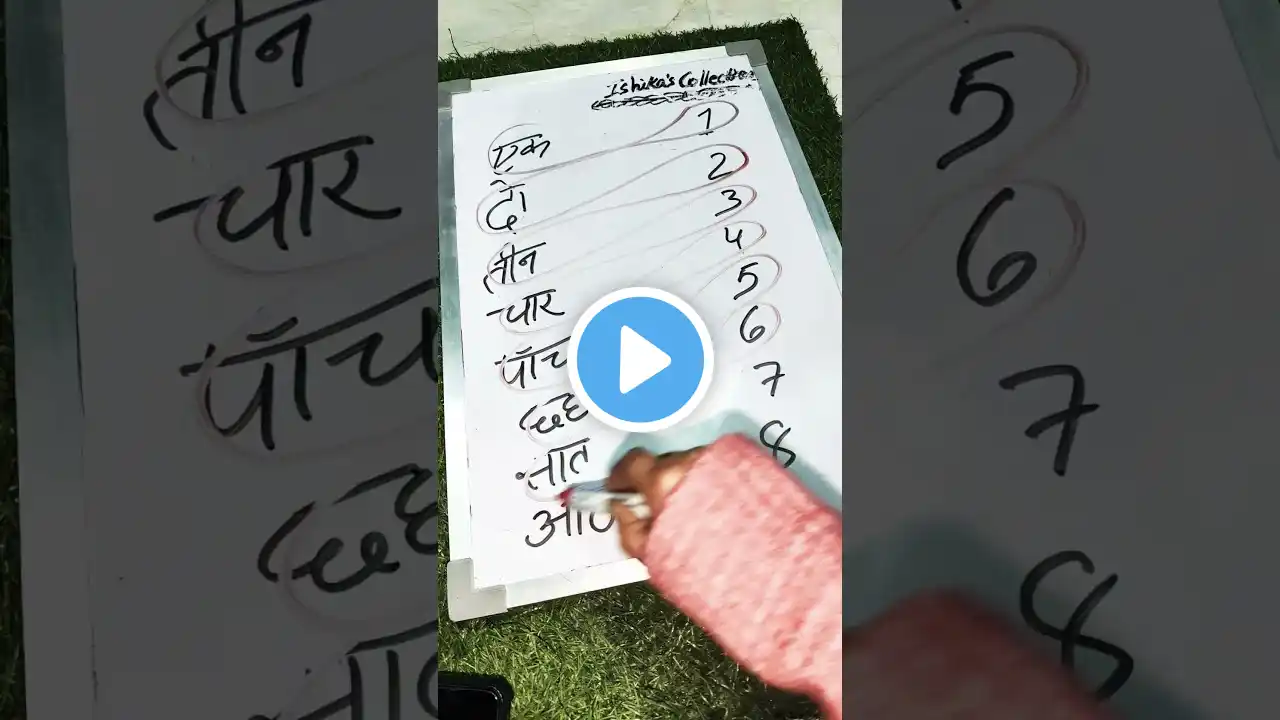 Ishika's Collection
एक 1
दो 2
तीन 3
चार 4
पाँच 5
छह 6
सात 7
आठ 8